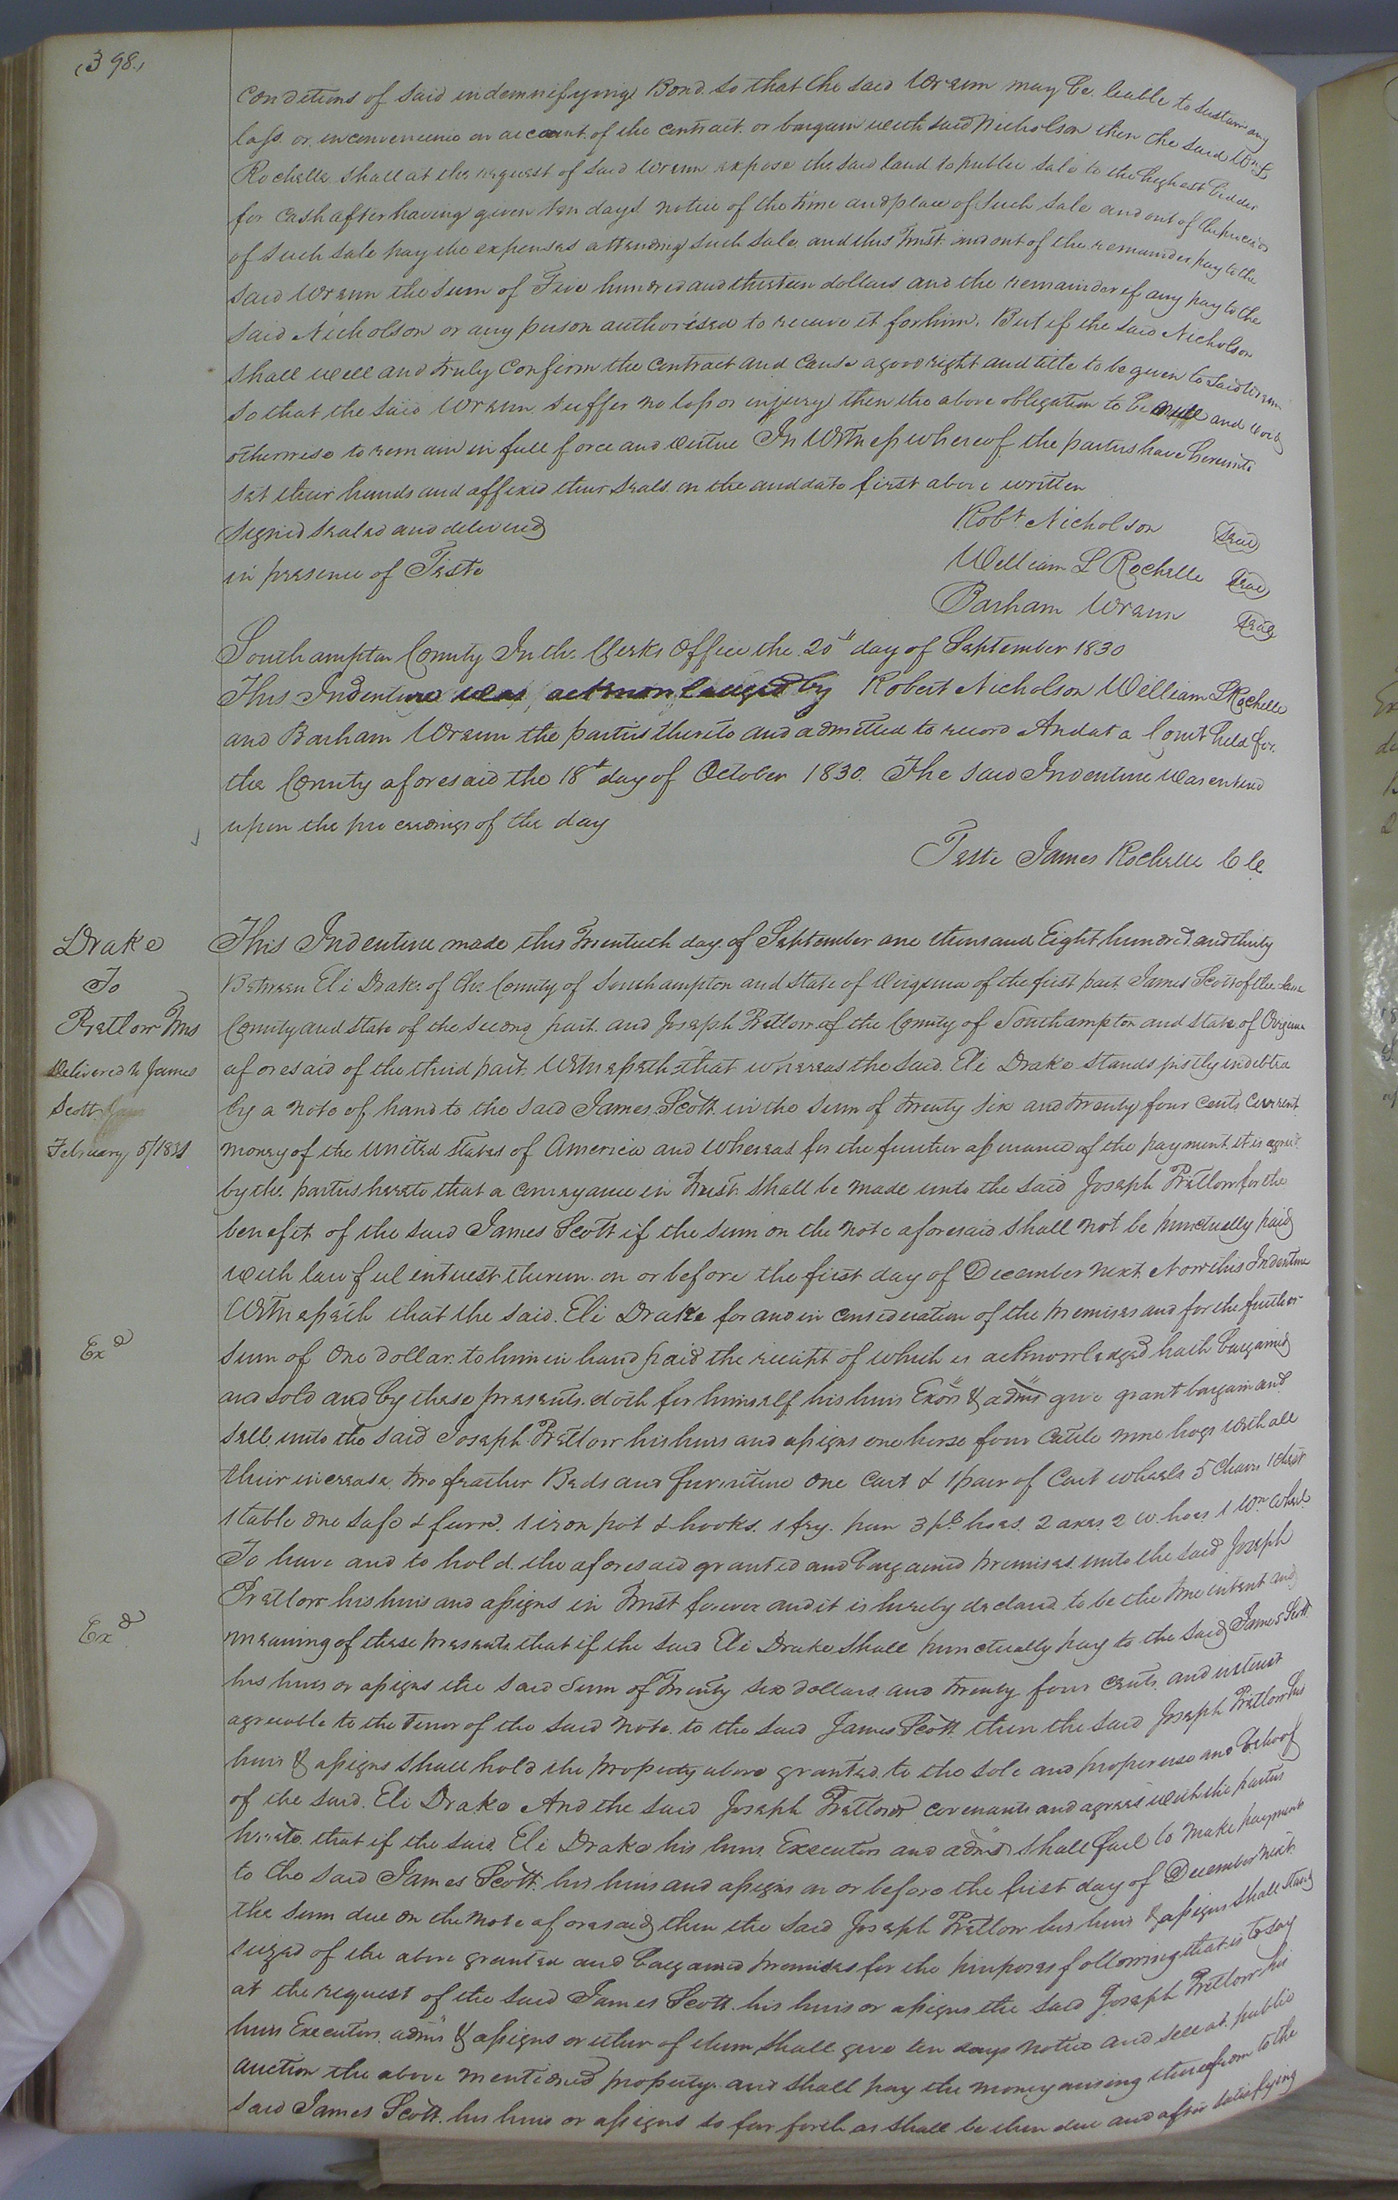 (398.)
Conditions of said indemnifying Bond. so that the said Wrenn may be liable to sustain any
loss or inconvenience on account of the contract or bargain with said Nicholson then the said Wm L
Rochelle shall at the request of said Wrenn expose the said land to public sale to the highest bidder
for cash after having given ten days notice of the time and place of such sale and out of the proceeds
of such sale pay the expenses attending such sale and this Trust and out of the remainder pay to the
said Wrenn the sum of Five hundred and thirteen dollars and the remainder if any pay to the
said Nicholson or any person authorised to receive it for him. But if the said Nicholson
shall well and truly confirm the contract and cause a good right and title to be given to said Wrenn
so that the said Wrenn suffer no loss or injury then the above obligation to be null and void
otherwise to remain in full force and virtue In Witness whereof the parties have hereunto
set their hands and affixed their seals on the and date first above written
Signed sealed and delivered
in presence of Teste
Robt Nicholson Seal
William L Rochelle Seal
Barham Wrenn Seal
Southampton County In the Clerks Office the 20th day of September 1830
This Indenture was acknowledged by Robert Nicholson William L Rochelle
and Barham Wrenn the parties thereto and admitted to record And at a Court held for
the County aforesaid the 18th day of October 1830. The said Indenture was entered
upon the proceedings of the day
Teste James Rochelle C C
Drake
To
Pretlow Trus
Delivered to James
Scott
February 5/1831
Exd
Exd
This Indenture made this Twentieth day of September one thousand Eight hundred and thirty
Between Eli Drake of the County of Southampton and State of Virginia of the first part James Scott of the same
County and State of the second part and Joseph Pretlow of the County of Southampton and State of Virginia
aforesaid of the third part. Witnesseth that whereas the said Eli Drake stands justly indebted
by a note of hand to the said James Scott in the sum of twenty six and twenty four cents current
money of the United States of America and whereas for the further assurance of the payment it is agreed
by the parties hereto that a conveyance in Trust shall be made unto the said Joseph Pretlow for the
benefit of the said James Scott if the sum on the note aforesaid shall not be punctually paid
with lawful interest thereon on or before the first day of December next. Now this Indenture
Witnesseth that the said Eli Drake for and in consideration of the premises and for the further
sum of One dollar to him in hand paid the receipt of which is acknowledged hath bargained
and sold and by these presents doth for himself his heirs Exors & admrs give grant bargain and
sell unto the said Joseph Pretlow his heirs and assigns one horse four Cattle nine hogs with all
their increase two feather Beds and furniture One Cart & 1 pair of Cart wheels 5 Chairs 1 chest
1 table one safe & furre. 1 iron pot & hooks. 1 fry. pan 3 ps. hoes. 2 axes 2 w hoes 1 Wn Wheel
To have and to hold the aforesaid granted and bargained premises unto the said Joseph
Pretlow his heirs and assigns in Trust forever and it is hereby declared to be the true intent and
meaning of these presents that if the said Eli Drake shall punctually pay to the said James Scott
his heirs or assigns the said sum of Twenty six dollars and twenty four cents and interest
agreeable to the Tenor of the said note to the said James Scott then the said Joseph Pretlow his
heirs & assigns shall hold the property above granted to the sole and proper use and behoof
of the said Eli Drake And the said Joseph Pretlow covenants and agrees with the parties
hereto that if the said Eli Drake his heirs Executors and admrs shall fail to make payment
to the said James Scott his heirs and assigns on or before the first day of December next
the sum due on the note aforesaid then the said Joseph Pretlow his heirs & assigns shall stand
seized of the above granted and bargained premises for the purposes following that is to say
at the request of the said James Scott his heirs or assigns the said Joseph Pretlow his
heirs Executors admrs & assigns or either of them shall give ten days notice and sell at public
auction the above mentioned property and shall pay the money arising therefrom to the
said James Scott his heirs or assigns so far forth as shall be then due and after satisfying